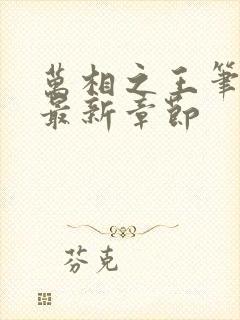 萬相之王筆
最新章節
芬克